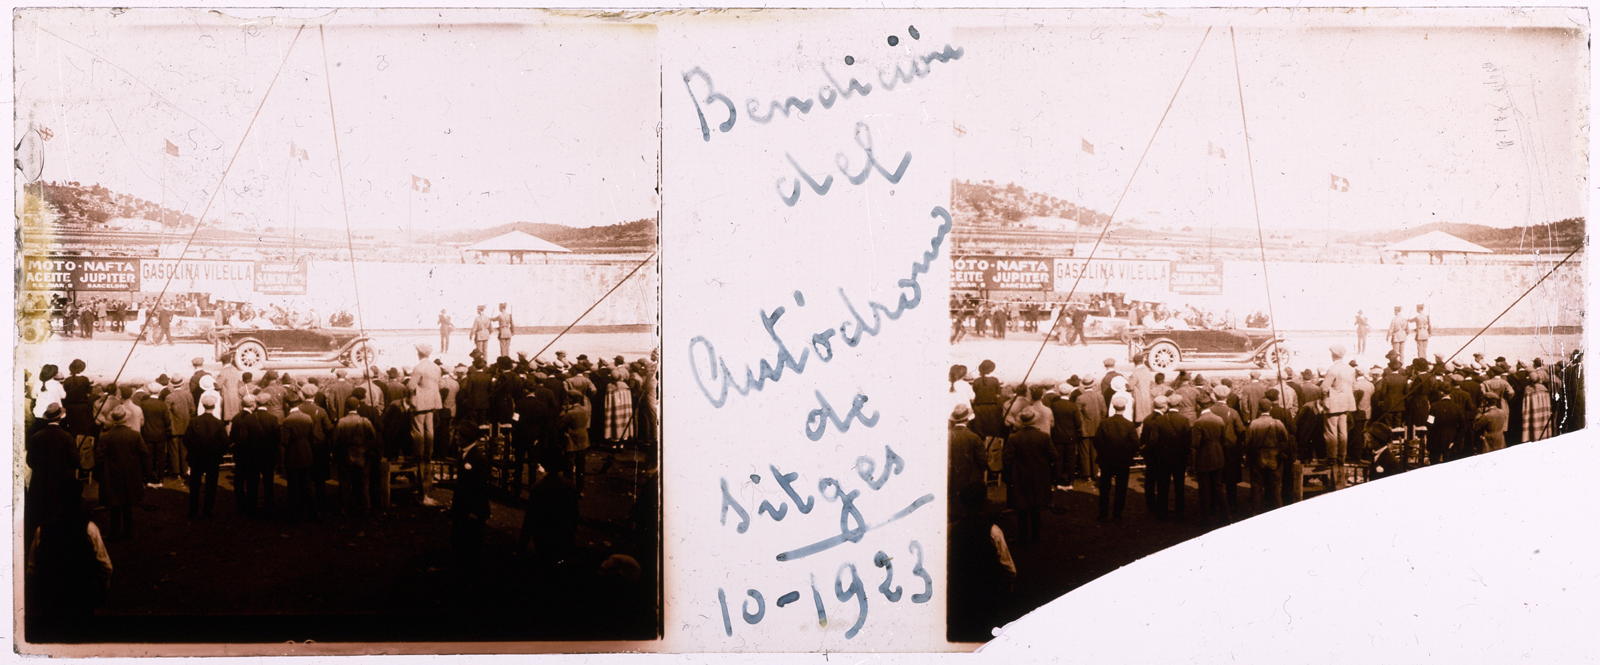 MOTO-NAFTA
ACEITE JUPITER
BARCELONA
GASOLINA VILELLA
Bendición
del
Autódromo
de
Sitges
10-1923
OTO-NAFTA
CEITE JUPITER
BARCELONA
GASOLINA VILELLA